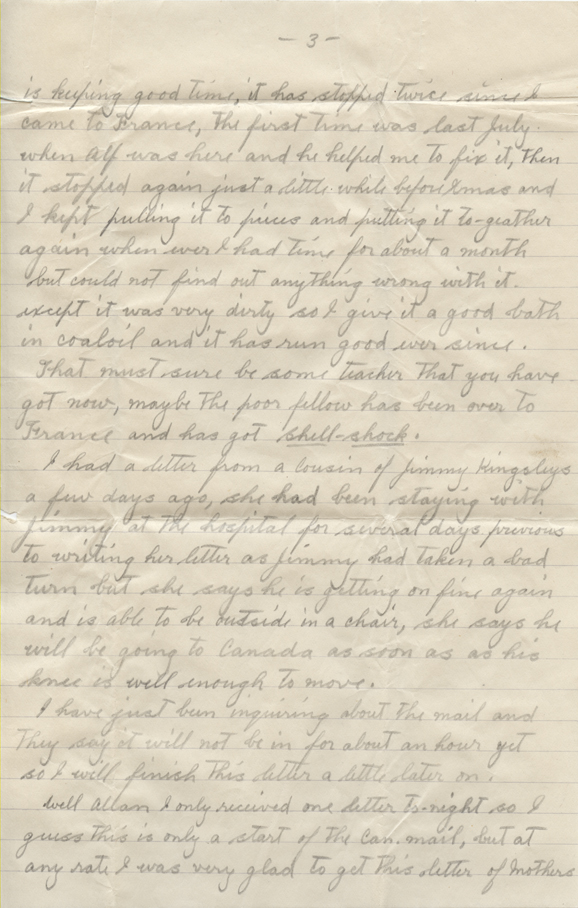 - 3 -
is keeping good time, it has stopped twice since I
came to France, the first time was last July.
when Alf was here and he helped me to fix it, then
it stopped again just a little while before Xmas and
I kept pulling it to pieces and putting it to-geather
again when ever I had time for about a month
but could not find out anything wrong with it.
except it was very dirty so I give it a good bath
in coaloil and it has run good ever since.
That must sure be some teacher that you have
got now, maybe the poor fellow has been over to
France and has got shell-shock.
I had a letter from a cousin of Jimmy Kingsleys
a few days ago, she had been staying with
Jimmy at the hospital for several days previous
to writing her letter as Jimmy had taken a bad
turn but she says he is getting on fine again
and is able to be outside in a chair, she says he
will be going to Canada as soon as as his
knee is well enough to move.
I have just been inquiring about the mail and
they say it will not be in for about an hour yet
so I will finish this letter a little later on.
Well Allan I only received one letter to-night so I
guess this is only a start of the Can. mail, but at
any rate I was very glad to get this letter of Mothers